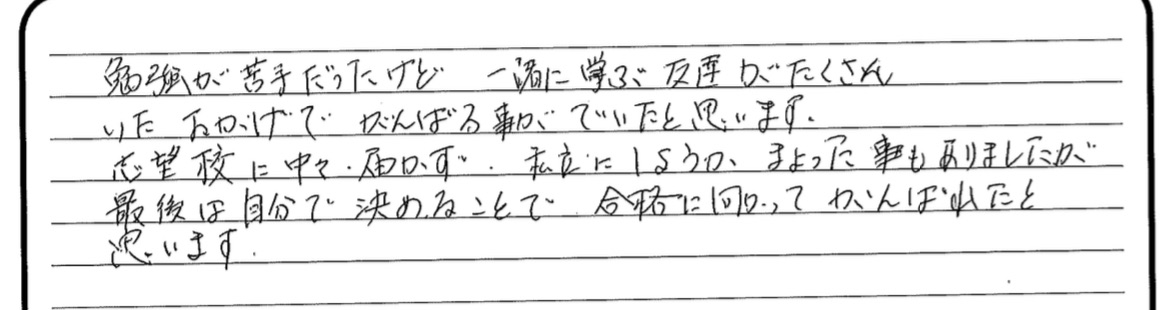 勉強が苦手だったけど 一緒に学ぶ友達がたくさん
いた おかげで がんばる事が でいたと思います.
志望校に中々.届かず. 私立にしようか、まよった事もありましたが
最後は自分で決めることで 合格に向かって がんばれたと
思います.